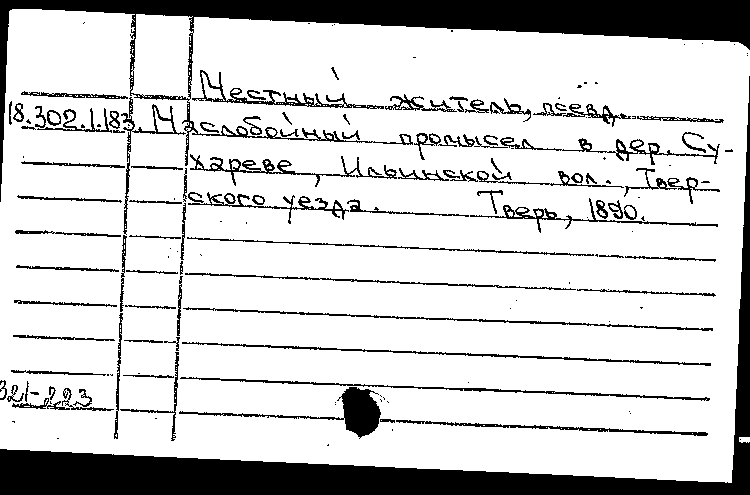 Местный житель, псевд.
18.302.1.183. Маслобойный промысел в дер. Су-
хареве, Ильинской вол., Твер-
ского уезда. Тверь, 1890.
321-223